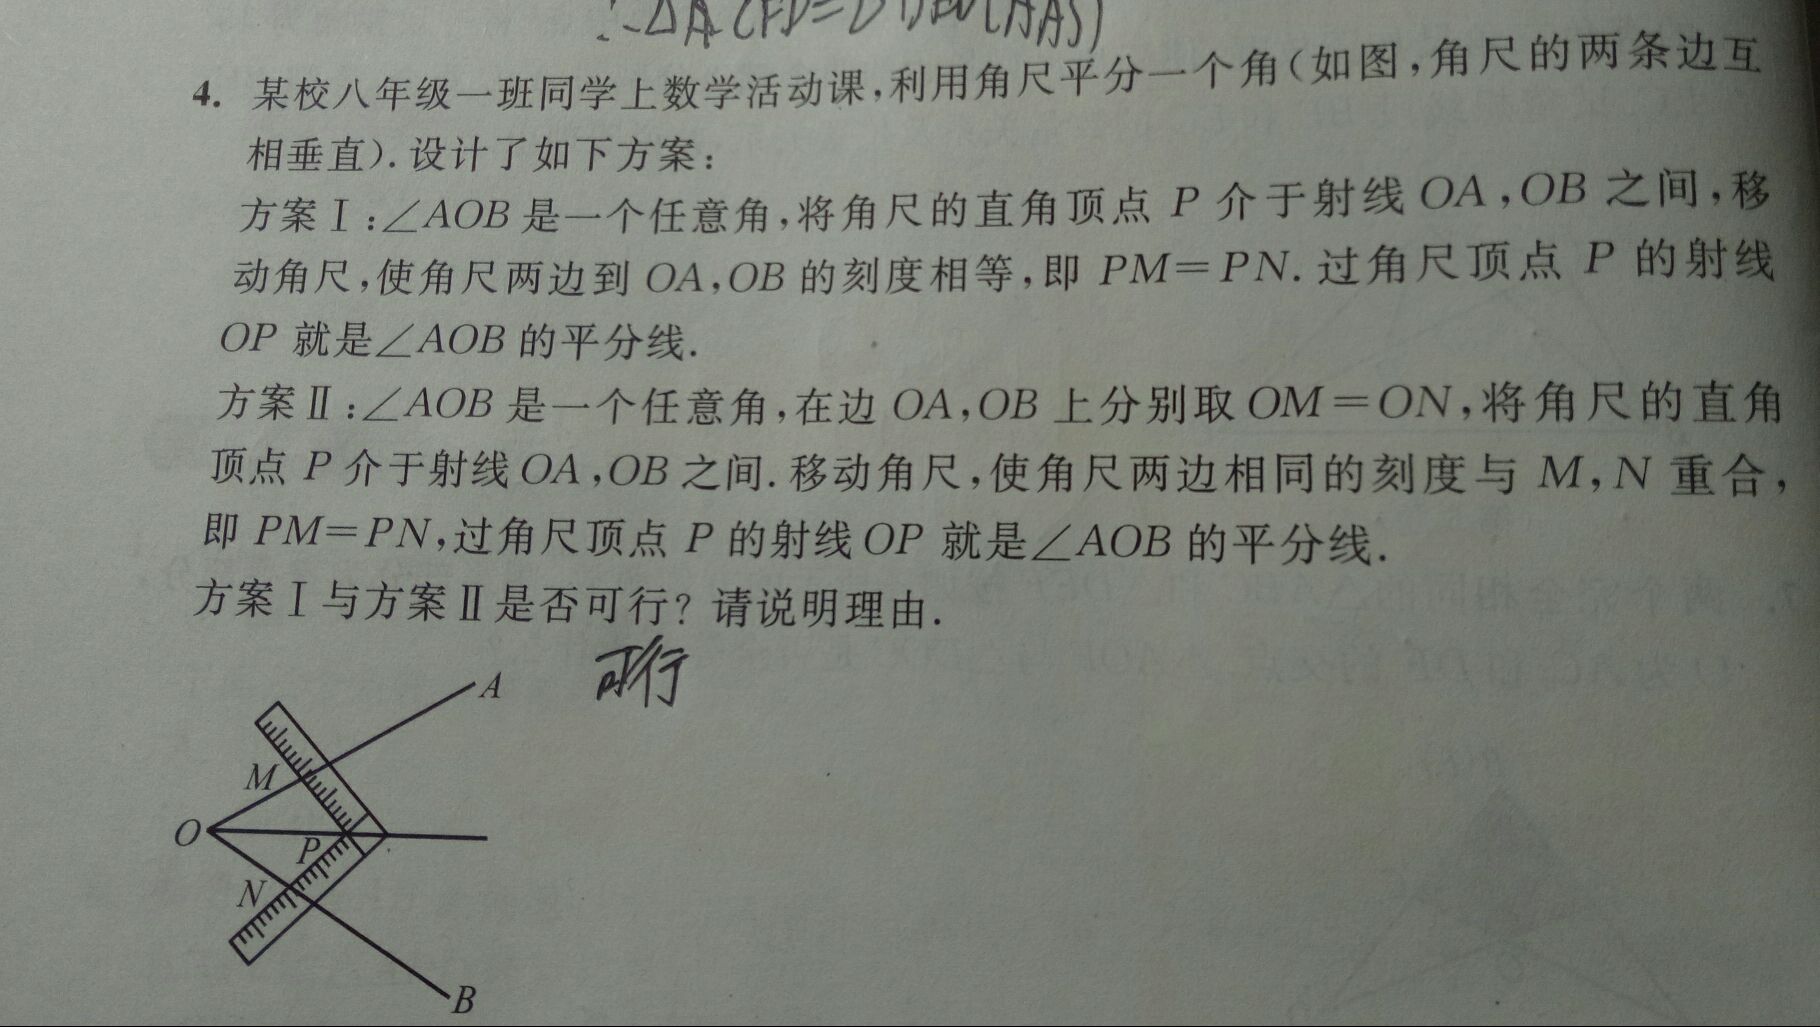 ∴△A
(AAS)
4. 某校八年级一班同学上数学活动课,利用角尺平分一个角(如图,角尺的两条边互
相垂直).设计了如下方案:
方案Ⅰ:∠AOB 是一个任意角,将角尺的直角顶点 P 介于射线 OA,OB 之间,移
动角尺,使角尺两边到 OA,OB 的刻度相等,即 PM=PN. 过角尺顶点 P 的射线
OP 就是∠AOB 的平分线.
方案Ⅱ:∠AOB 是一个任意角,在边 OA,OB 上分别取 OM=ON,将角尺的直角
顶点 P 介于射线 OA,OB 之间. 移动角尺,使角尺两边相同的刻度与 M,N 重合,
即 PM=PN,过角尺顶点 P 的射线 OP 就是∠AOB 的平分线.
方案Ⅰ与方案Ⅱ是否可行? 请说明理由.
可行
A
M
O
P
N
B